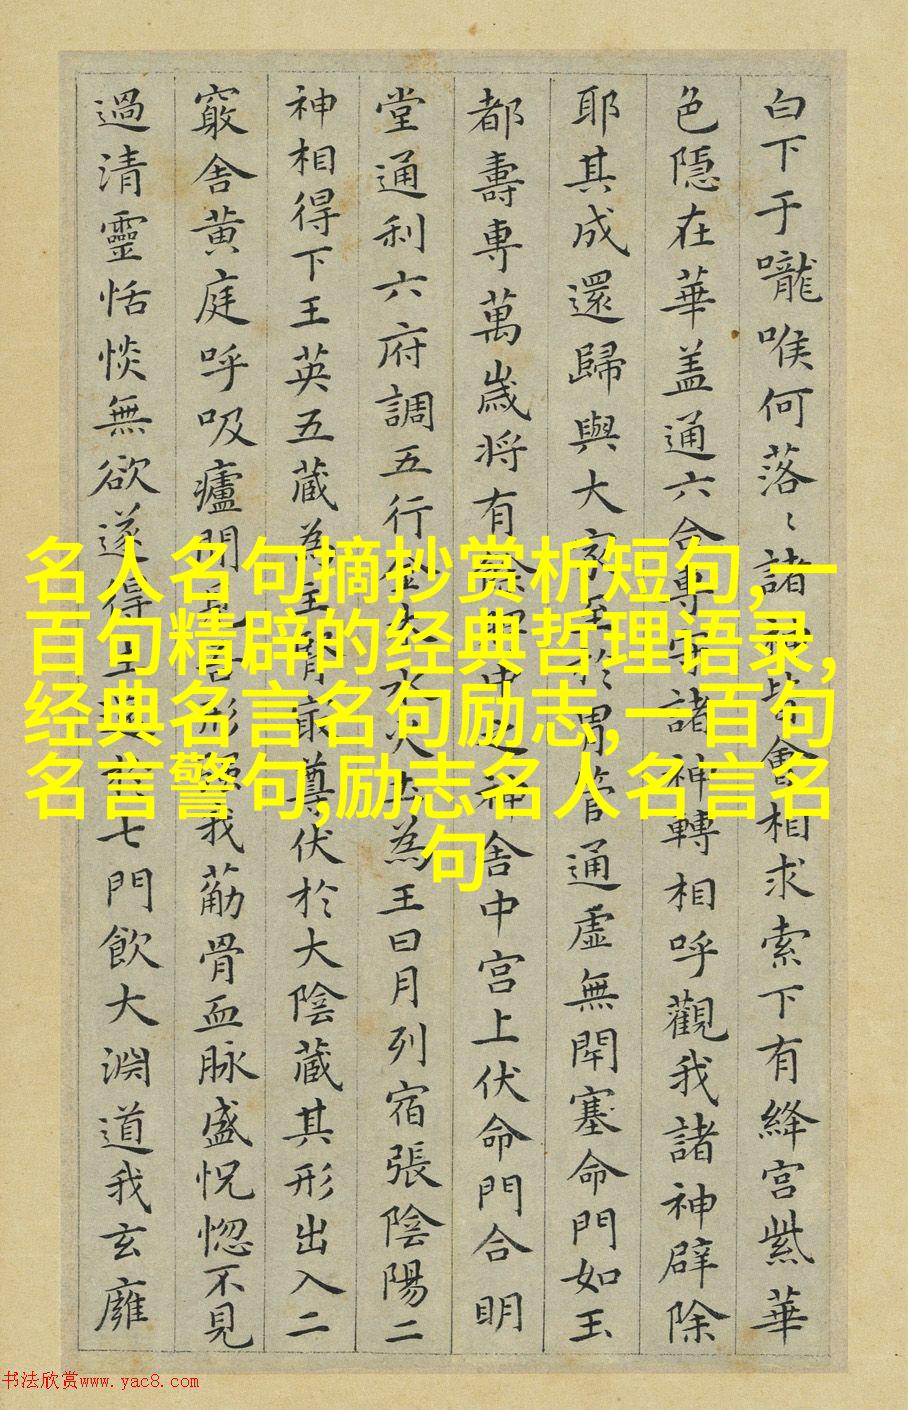 白下于嚨喉何落〻諸神皆會相求索下有絳宮紫華
色隱在華盖通六合專守諸神轉相呼觀我諸神辟除
耶其成還歸與大家至於胃管通虛無閇塞命門如玉
都壽專萬歲將有餘脾中之神舍中宮上伏命門合明
堂通利六府調五行金木水火土為王日月列宿張陰陽二
神相得下王英五藏為主腎最尊伏於大陰藏其形出入二
竅舍黄庭呼吸廬間見吾形強我荕骨血脉盛怳惚不見
過清靈恬惔無欲遂得生道於七門飲大淵道我玄廱
名人名句摘抄赏析短句,一
百句精辟的经典哲理语录,
经典名言名句励志,一百句
名言警句,励志名人名言名
句
书法欣赏www.yac8.com